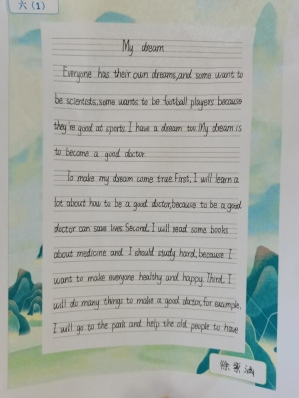 六（1）
My dream
Everyone has their own dreams,and some want to
be scientists,some wants to be football players because
they're good at sports. I have a dream too. My dream is
to become a good doctor.
To make my dream come true. First, I will learn a
lot about how to be a good doctor,because to be a good
doctor can save lives. Second, I will read some books
about medicine and I should study hard, because I
want to make everyone healthy and happy. Third, I
will do many things to make a good doctor, for example,
I will go to the park and help the old people to have
徐涵